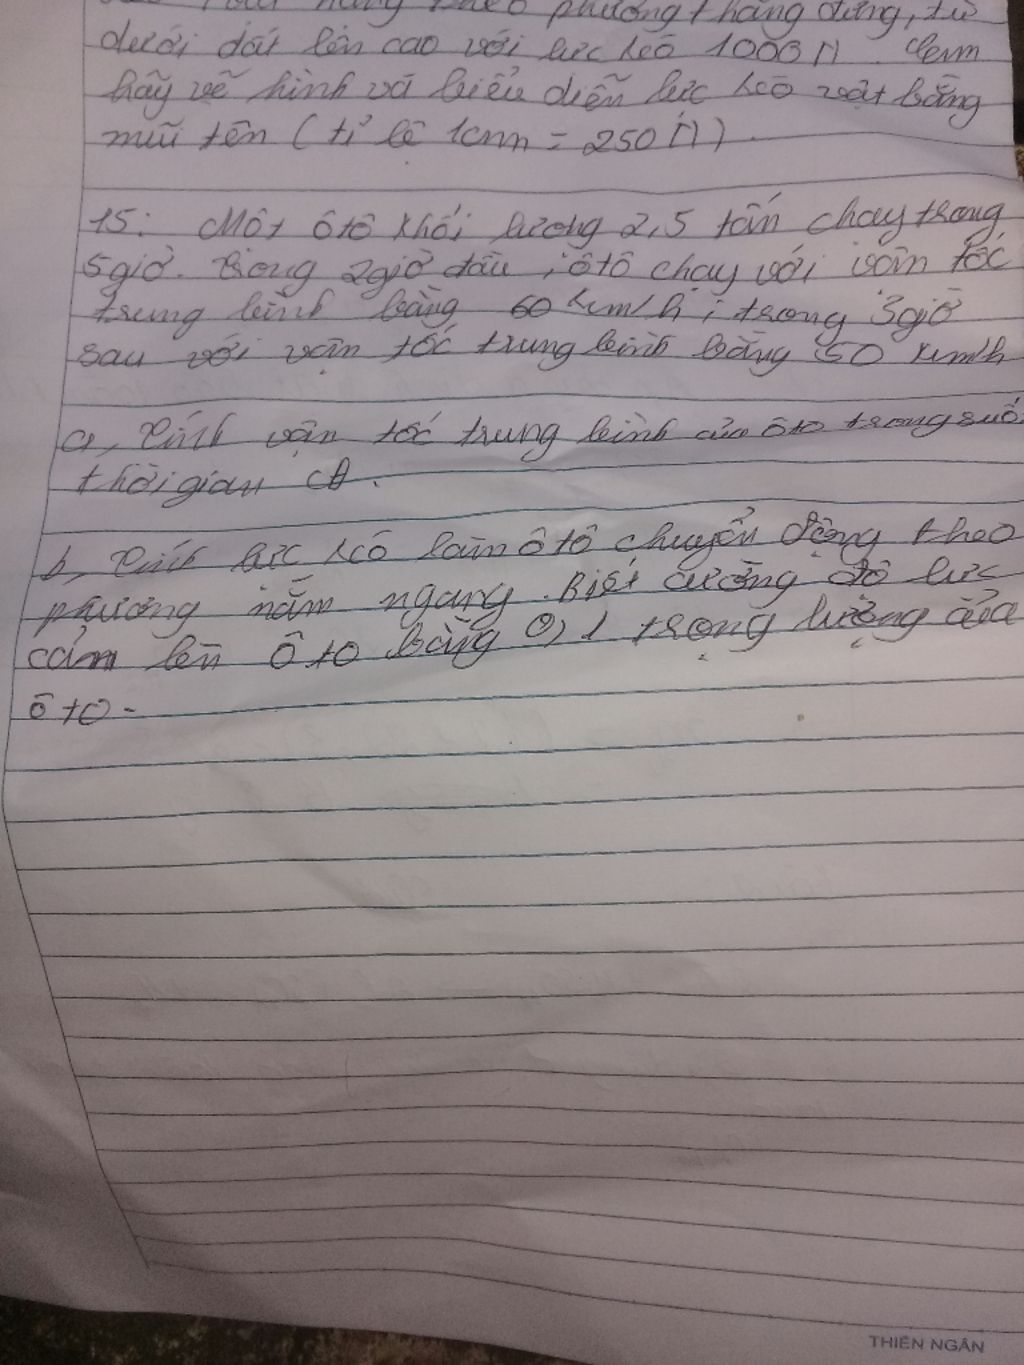 phương thẳng đứng, từ
dưới đất lên cao với lực kéo 1000 N. Cem
hãy vẽ hình và biểu diễn lực kéo vật bằng
mũi tên ( tỉ lệ 1cm = 250 N )
15: Một ô tô khối lượng 2,5 tấn chạy trong
5 giờ. Trong 2 giờ đầu, ô tô chạy với vận tốc
trung bình bằng 60 km/h; trong 3 giờ
sau với vận tốc trung bình bằng 50 km/h
a, Tính vận tốc trung bình của ô tô trong suốt
thời gian CĐ.
b, Tính lực kéo làm ô tô chuyển động theo
phương nằm ngang. Biết cường độ lực
cản lên ô tô bằng 0,1 trọng lượng của
ô tô -
THIÊN NGÂN